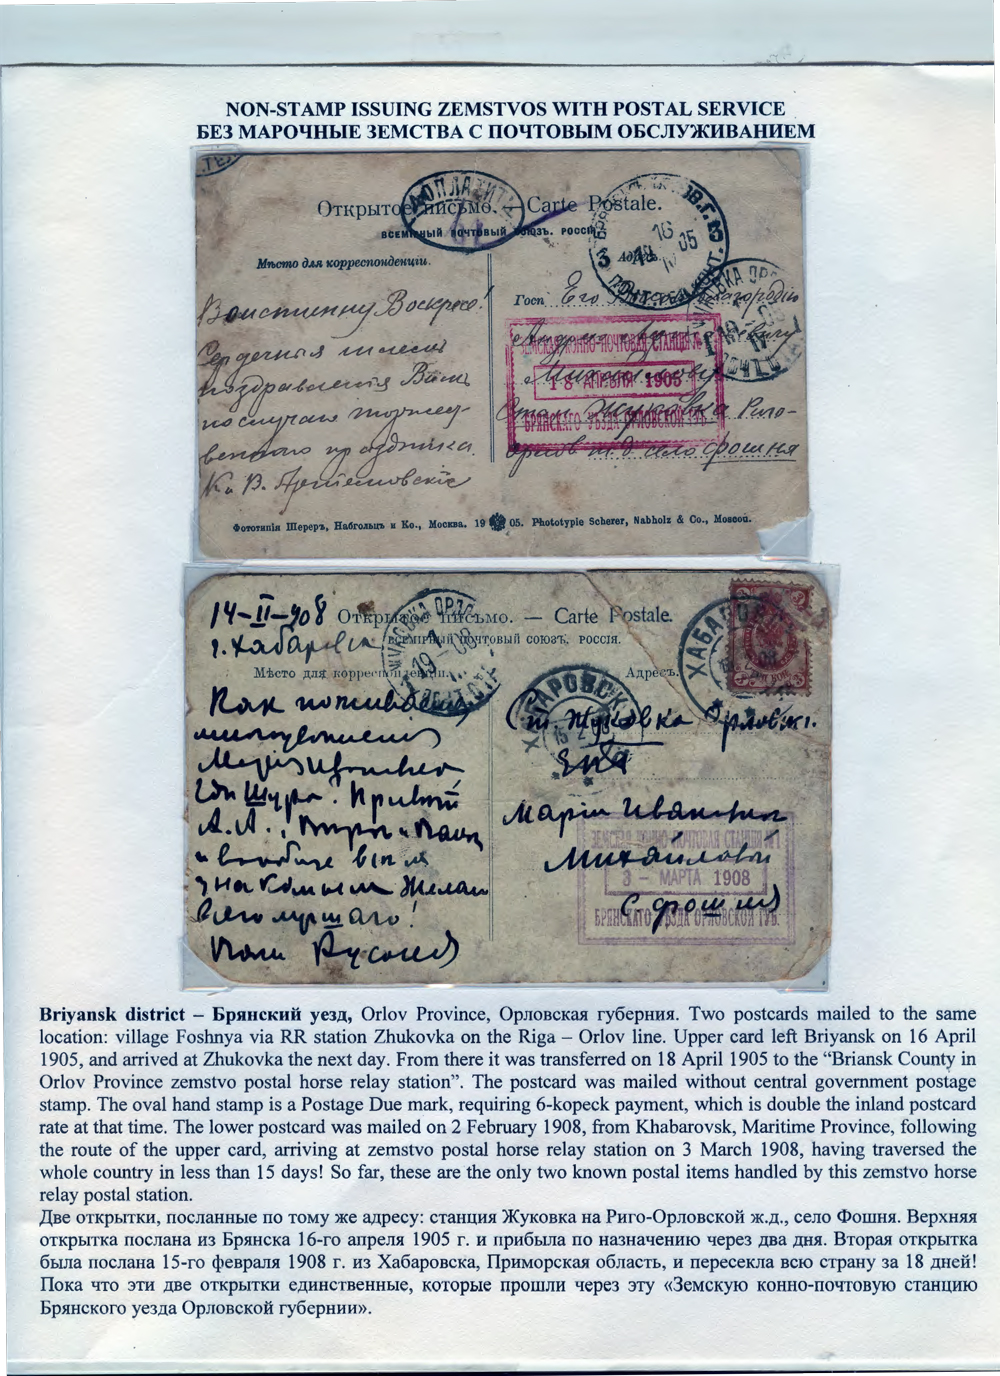 NON-STAMP ISSUING ZEMSTVOS WITH POSTAL SERVICE
БЕЗ МАРОЧНЫЕ ЗЕМСТВА С ПОЧТОВЫМ ОБСЛУЖИВАНИЕМ
ДОПЛАТИТЬ
Открытое письмо. Carte Postale.
ВСЕМІРНЫЙ ПОЧТОВЫЙ СОЮЗЪ. РОССІЯ
16
18 05
ПОЧТ. ТЕЛ. КОНТ.
Мѣсто для корреспонденціи.
Адресъ.
Воистинну Воскресе!
Сердечныя
поздравленія Вамъ
по случаю торжест-
веннаго праздника
К. и В.
Госп Его
Жуковка Риго-
село Фошня
ЗЕМСКАЯ КОННО-ПОЧТОВАЯ СТАНЦІЯ №1
18 АПРЕЛЯ 1905
БРЯНСКАГО УѢЗДА ОРЛОВСКОЙ ГУБ.
Фототипія Шереръ, Набгольцъ и Ко., Москва. 19 05. Phototypie Scherer, Nabholz & Co., Moscou.
14-II-908
г. Хабаровск
Открытое письмо. — Carte Postale.
ВСЕМІРНЫЙ ПОЧТОВЫЙ СОЮЗЪ. РОССІЯ.
Мѣсто для корреспонденціи.
Адресъ.
ЖУКОВКА ОРЛ.
19 08
ХАБАРОВСКЪ
ХАБАРОВСКЪ
Какъ
Шура. Привѣт
А.А.,
и вообще всѣм
знакомым желаю
всего лучшаго!
ст. Жуковка Орловск. г.
Маріи Ивановнѣ
Михайловой
с. Фошня
ЗЕМСКАЯ КОННО-ПОЧТОВАЯ СТАНЦІЯ №1
3 - МАРТА 1908
БРЯНСКАГО УѢЗДА ОРЛОВСКОЙ ГУБ.
Briyansk district – Брянский уезд, Orlov Province, Орловская губерния. Two postcards mailed to the same
location: village Foshnya via RR station Zhukovka on the Riga – Orlov line. Upper card left Briyansk on 16 April
1905, and arrived at Zhukovka the next day. From there it was transferred on 18 April 1905 to the “Briansk County in
Orlov Province zemstvo postal horse relay station”. The postcard was mailed without central government postage
stamp. The oval hand stamp is a Postage Due mark, requiring 6-kopeck payment, which is double the inland postcard
rate at that time. The lower postcard was mailed on 2 February 1908, from Khabarovsk, Maritime Province, following
the route of the upper card, arriving at zemstvo postal horse relay station on 3 March 1908, having traversed the
whole country in less than 15 days! So far, these are the only two known postal items handled by this zemstvo horse
relay postal station.
Две открытки, посланные по тому же адресу: станция Жуковка на Риго-Орловской ж.д., село Фошня. Верхняя
открытка послана из Брянска 16-го апреля 1905 г. и прибыла по назначению через два дня. Вторая открытка
была послана 15-го февраля 1908 г. из Хабаровска, Приморская область, и пересекла всю страну за 18 дней!
Пока что эти две открытки единственные, которые прошли через эту «Земскую конно-почтовую станцию
Брянского уезда Орловской губернии».